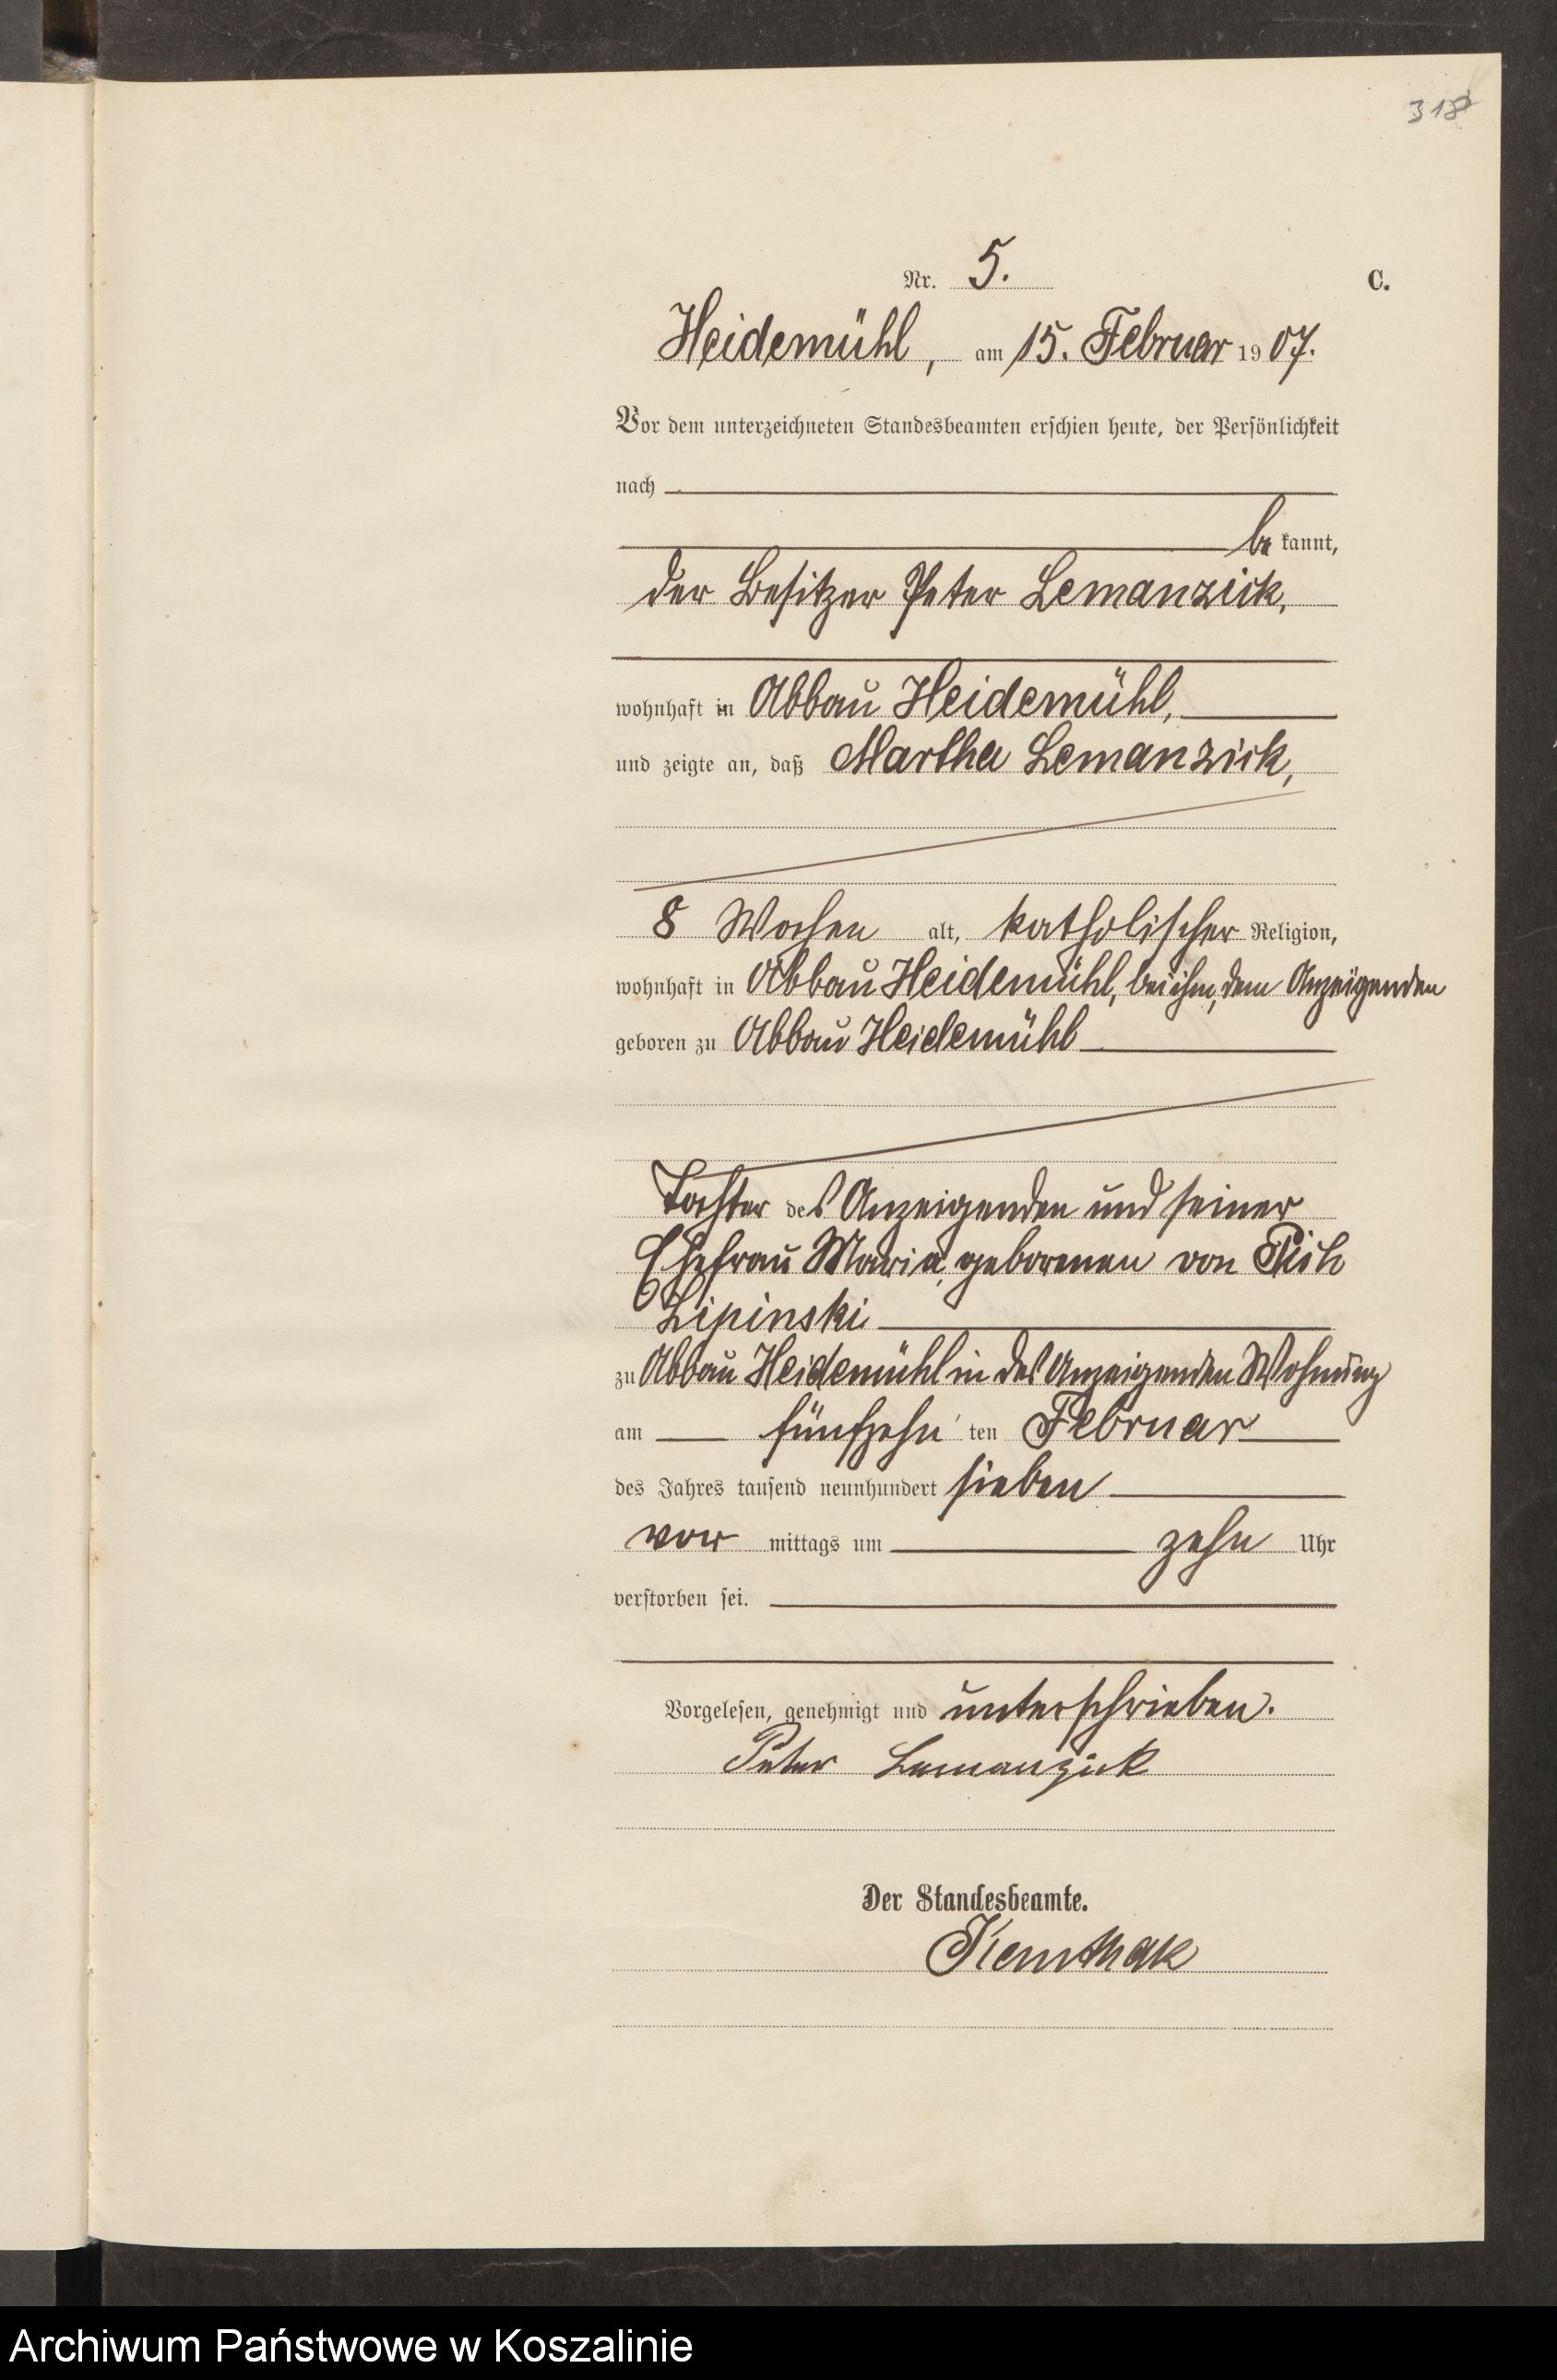 318
Nr. 5. C.
Heidemühl, am 15. Februar 1907.
Vor dem unterzeichneten Standesbeamten erschien heute, der Persönlichkeit
nach
be kannt,
der Besitzer Peter Lemanzick,
wohnhaft in Abbau Heidemühl,
und zeigte an, daß Martha Lemanzick,
8 Wochen alt, katholischer Religion,
wohnhaft in Abbau Heidemühl, bei ihm, dem Anzeigenden
geboren zu Abbau Heidemühl
Tochter des Anzeigenden und seiner
Ehefrau Maria, geborenen von
Lipinski
zu Abbau Heidemühl in des Anzeigenden Wohnung
am fünfzehn ten Februar
des Jahres tausend neunhundert sieben
vor mittags um zehn Uhr
verstorben sei.
Vorgelesen, genehmigt und unterschrieben.
Peter Lemanzick
Der Standesbeamte.
Archiwum Państwowe w Koszalinie